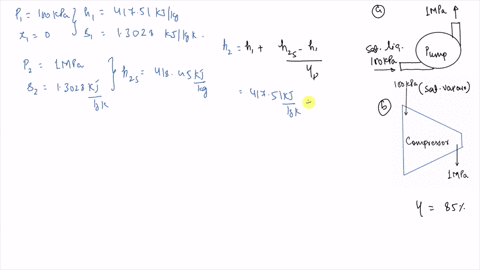 P₁ = 100 kPa } h₁ = 417.51 kJ/kg
x₁ = 0 } s₁ = 1.3028 kJ/kg k.
P₂ = 1 MPa } h₂s = 418.45 kJ/kg
s₂ = 1.3028 kJ/kg k
h₂ = h₁ + (h₂s - h₁)/ηp
= 417.51 kJ/kg k =
ⓐ
1 MPa
Sat. liq.
100 kPa
Pump
100 kPa (sat. vapour)
ⓑ
Compressor
1 MPa
η = 85%